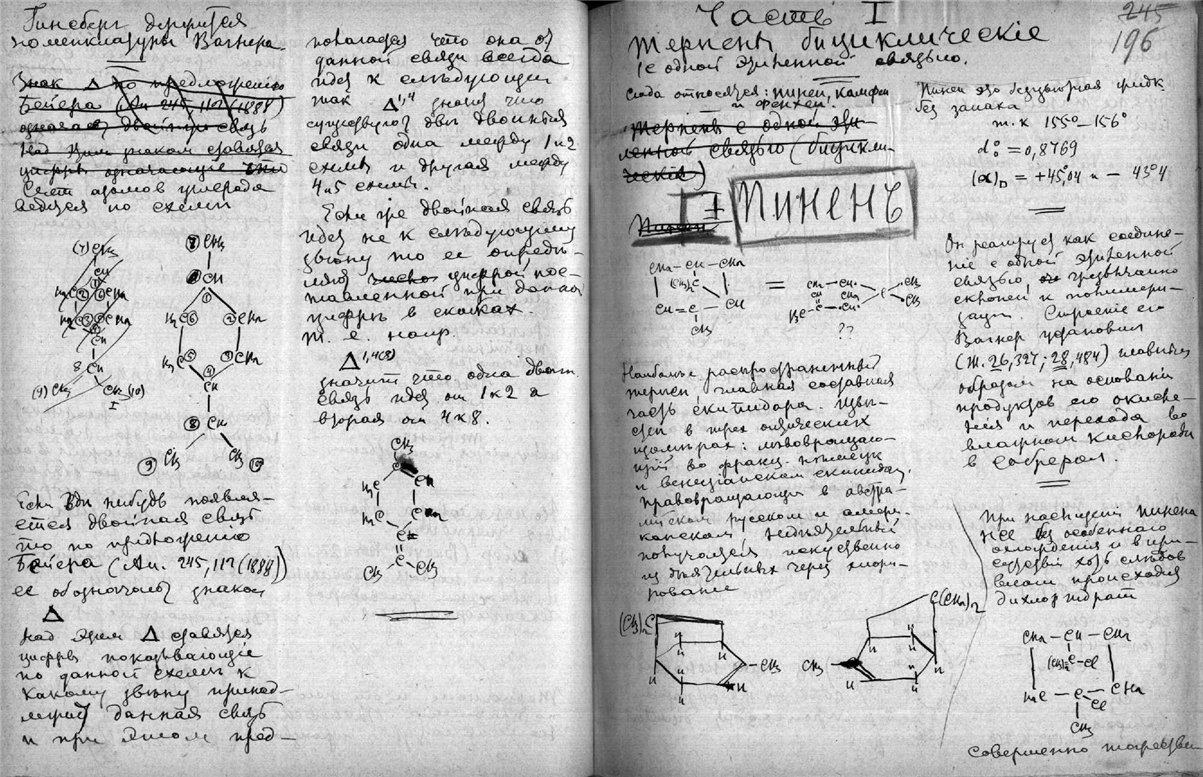 Гинсберг держится
номенклатуры Вагнера.
Знак Δ по предложению
Бейера (An. 245, 112 (1888)
двойную связь
Над этим знаком ставятся
цифры означающие
Счет атомов углерода
ведется по схеме
(7) CH₃
CH
8 CH
(9) CH₃ CH₃ (10)
I
7 CH₃
CH
1
H₂C 6 2 CH₂
H₂C 5 3 CH₂
4
CH
8
9 CH₃ CH₃ 10
Если где нибудь появля-
ется двойная связь
то по предложению
Бейера (An. 245, 112 (1888))
ее обозначают знаком
Δ
Над этим Δ ставятся
цифры показывающие
по данной схеме к
какому звену принад-
лежит данная связь
и при этом пред-
полагается что она от
данной связи всегда
идет к следующей
так Δ¹,⁴ значит что
существуют две двойныя
связи одна между 1 и 2
схемы и другая между
4 и 5 схемы.
Если же двойная связь
идет не к следующему
звену то ее опреде-
ляют цифрой пос-
тавленной при данной
цифре в скобках.
т. е. напр.
Δ¹,⁴⁽⁸⁾
значит что одна двойн.
связь идет от 1 к 2 а
вторая от 4 к 8.
CH₃
C
H₂C CH
H₂C CH₂
C
C
CH₃ CH₃
Часть I
245
196
Терпены бициклическіе
(с одной этиленной связью.
Сюда относятся: пинен, камфен
и фенхен.
Терпены с одной эти-
ленной связью (бицикли-
ческия)
Пинен
I Пиненъ
CH₂ – CH – CH₂
(CH₃)₂C
CH = C – CH
CH₃
=
??
Наиболее распространенный
терпен, главная составная
часть скипидара.
в трех оптических
изомерах: левовращаю-
щий во франц.
и венецианском скипидар,
правовращающий в австра-
лийском русском и амери-
канском недеятельный
получающейся искусственно
из деятельных через хлори-
рование
(CH₃)₂C
CH₃
CH₃
C(CH₃)₂
Пинен это безцветная жидк.
без запаха
т. к 155° – 156°
d₀° = 0,8769
(α)D = +45°,04 и – 43°4
Он реагирует как соедине-
ніе с одной этиленной
связью, чрезвычайно
склонен к полимери-
зации. Строеніе его
Вагнер установил
(Ж. 26, 327; 28, 484) главным
образом на основании
продуктов его окисле-
ния и перехода во
влажном кислороде
в собрерол.
При насыщении пинена
HCl без особенного
охлаждения и в при-
сутствии хоть следов
влаги происходит
дихлоргидрат
CH₂ – CH – CH₂
(CH₃)₂C – Cl
H₂C – C – CH₂
Cl
CH₃
совершенно тождествен